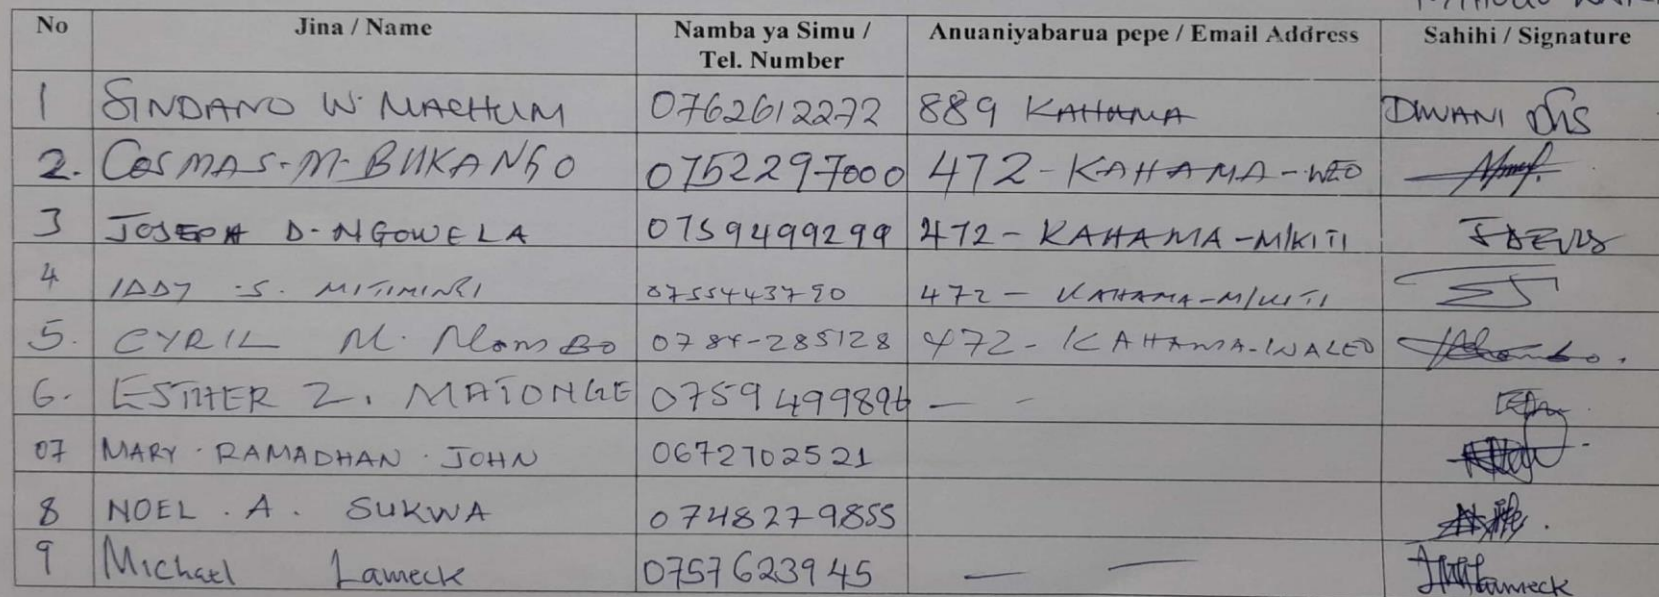 No Jina / Name Namba ya Simu / Tel. Number Anuaniyabarua pepe / Email Address Sahihi / Signature
1 SINDANO W. MACHUM 0762612272 889 KAHAMA DIWANI
2. COSMAS-M-BUKANGO 0752297000 472-KAHAMA-WEO
3 JOSEPH D-NGOWELA 0759499299 472-KAHAMA-M/KITI
4 IDDY .S. MITIMINGI 0755443790 472-KAHAMA-M/KITI
5. CYRIL M. Mombo 0784-285128 472-KAHAMA-
6. ESTHER Z. MATONGE 0759499896 — -
07 MARY. RAMADHAN. JOHN 0672702521
8 NOEL. A. SUKWA 0748279855
9 Michael Lameck 0757623945 — — Lameck